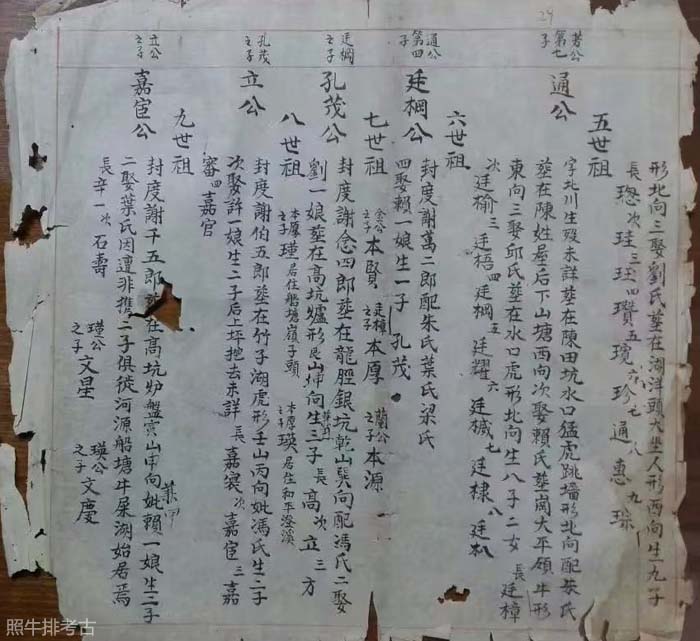 24
形北向三娶劉氏塟在湖洋頭大坐人形西向生九子
長璁次珪三珏四瓚五瓊六珍七通八惠九琮
五世祖
芳公第七子
通公
字北川生殁未詳塟在陳田坑水口猛虎跳墻形北向配蔡氏
塟在陳姓屋后下山塘西向次娶賴氏塟崗大平碩牛形
東向三娶邱氏塟在水口虎形北向生八子二女長廷樟
次廷榆三廷梧四廷棡五廷耀六廷械七廷棣八廷朳
六世祖
通公第四子
廷棡公
封度謝萬二郎配朱氏葉氏梁氏
四娶賴一娘生一子孔茂
七世祖
念公之子本賢 廷槙之子本厚 蘭公之子本源
廷棡之子
孔茂公
封度謝念四郎塟在龍脛銀坑乾山巽向配馮氏二娶
劉一娘塟在高坑爐形艮山坤向生三子長高次立三方
八世祖
本厚之子瑾居住船塘嶺子頭 本厚之子瑛居住和平澄溪
孔茂之子
立公
封度謝伯五郎塟在竹子湖虎形壬山丙向妣馮氏生二子
次娶許一娘生二子后上坪挖去未詳長嘉寰次嘉宦三嘉
審四嘉官
九世祖
瑾公之子文星 瑛公之子文慶
立公之子
嘉宦公
封度謝千五郎塟在高坑山甲向妣賴一娘生二子
二娶葉氏因遭非携二子俱徙河源船塘牛屎湖始居焉
長辛一次石壽
照牛排考古